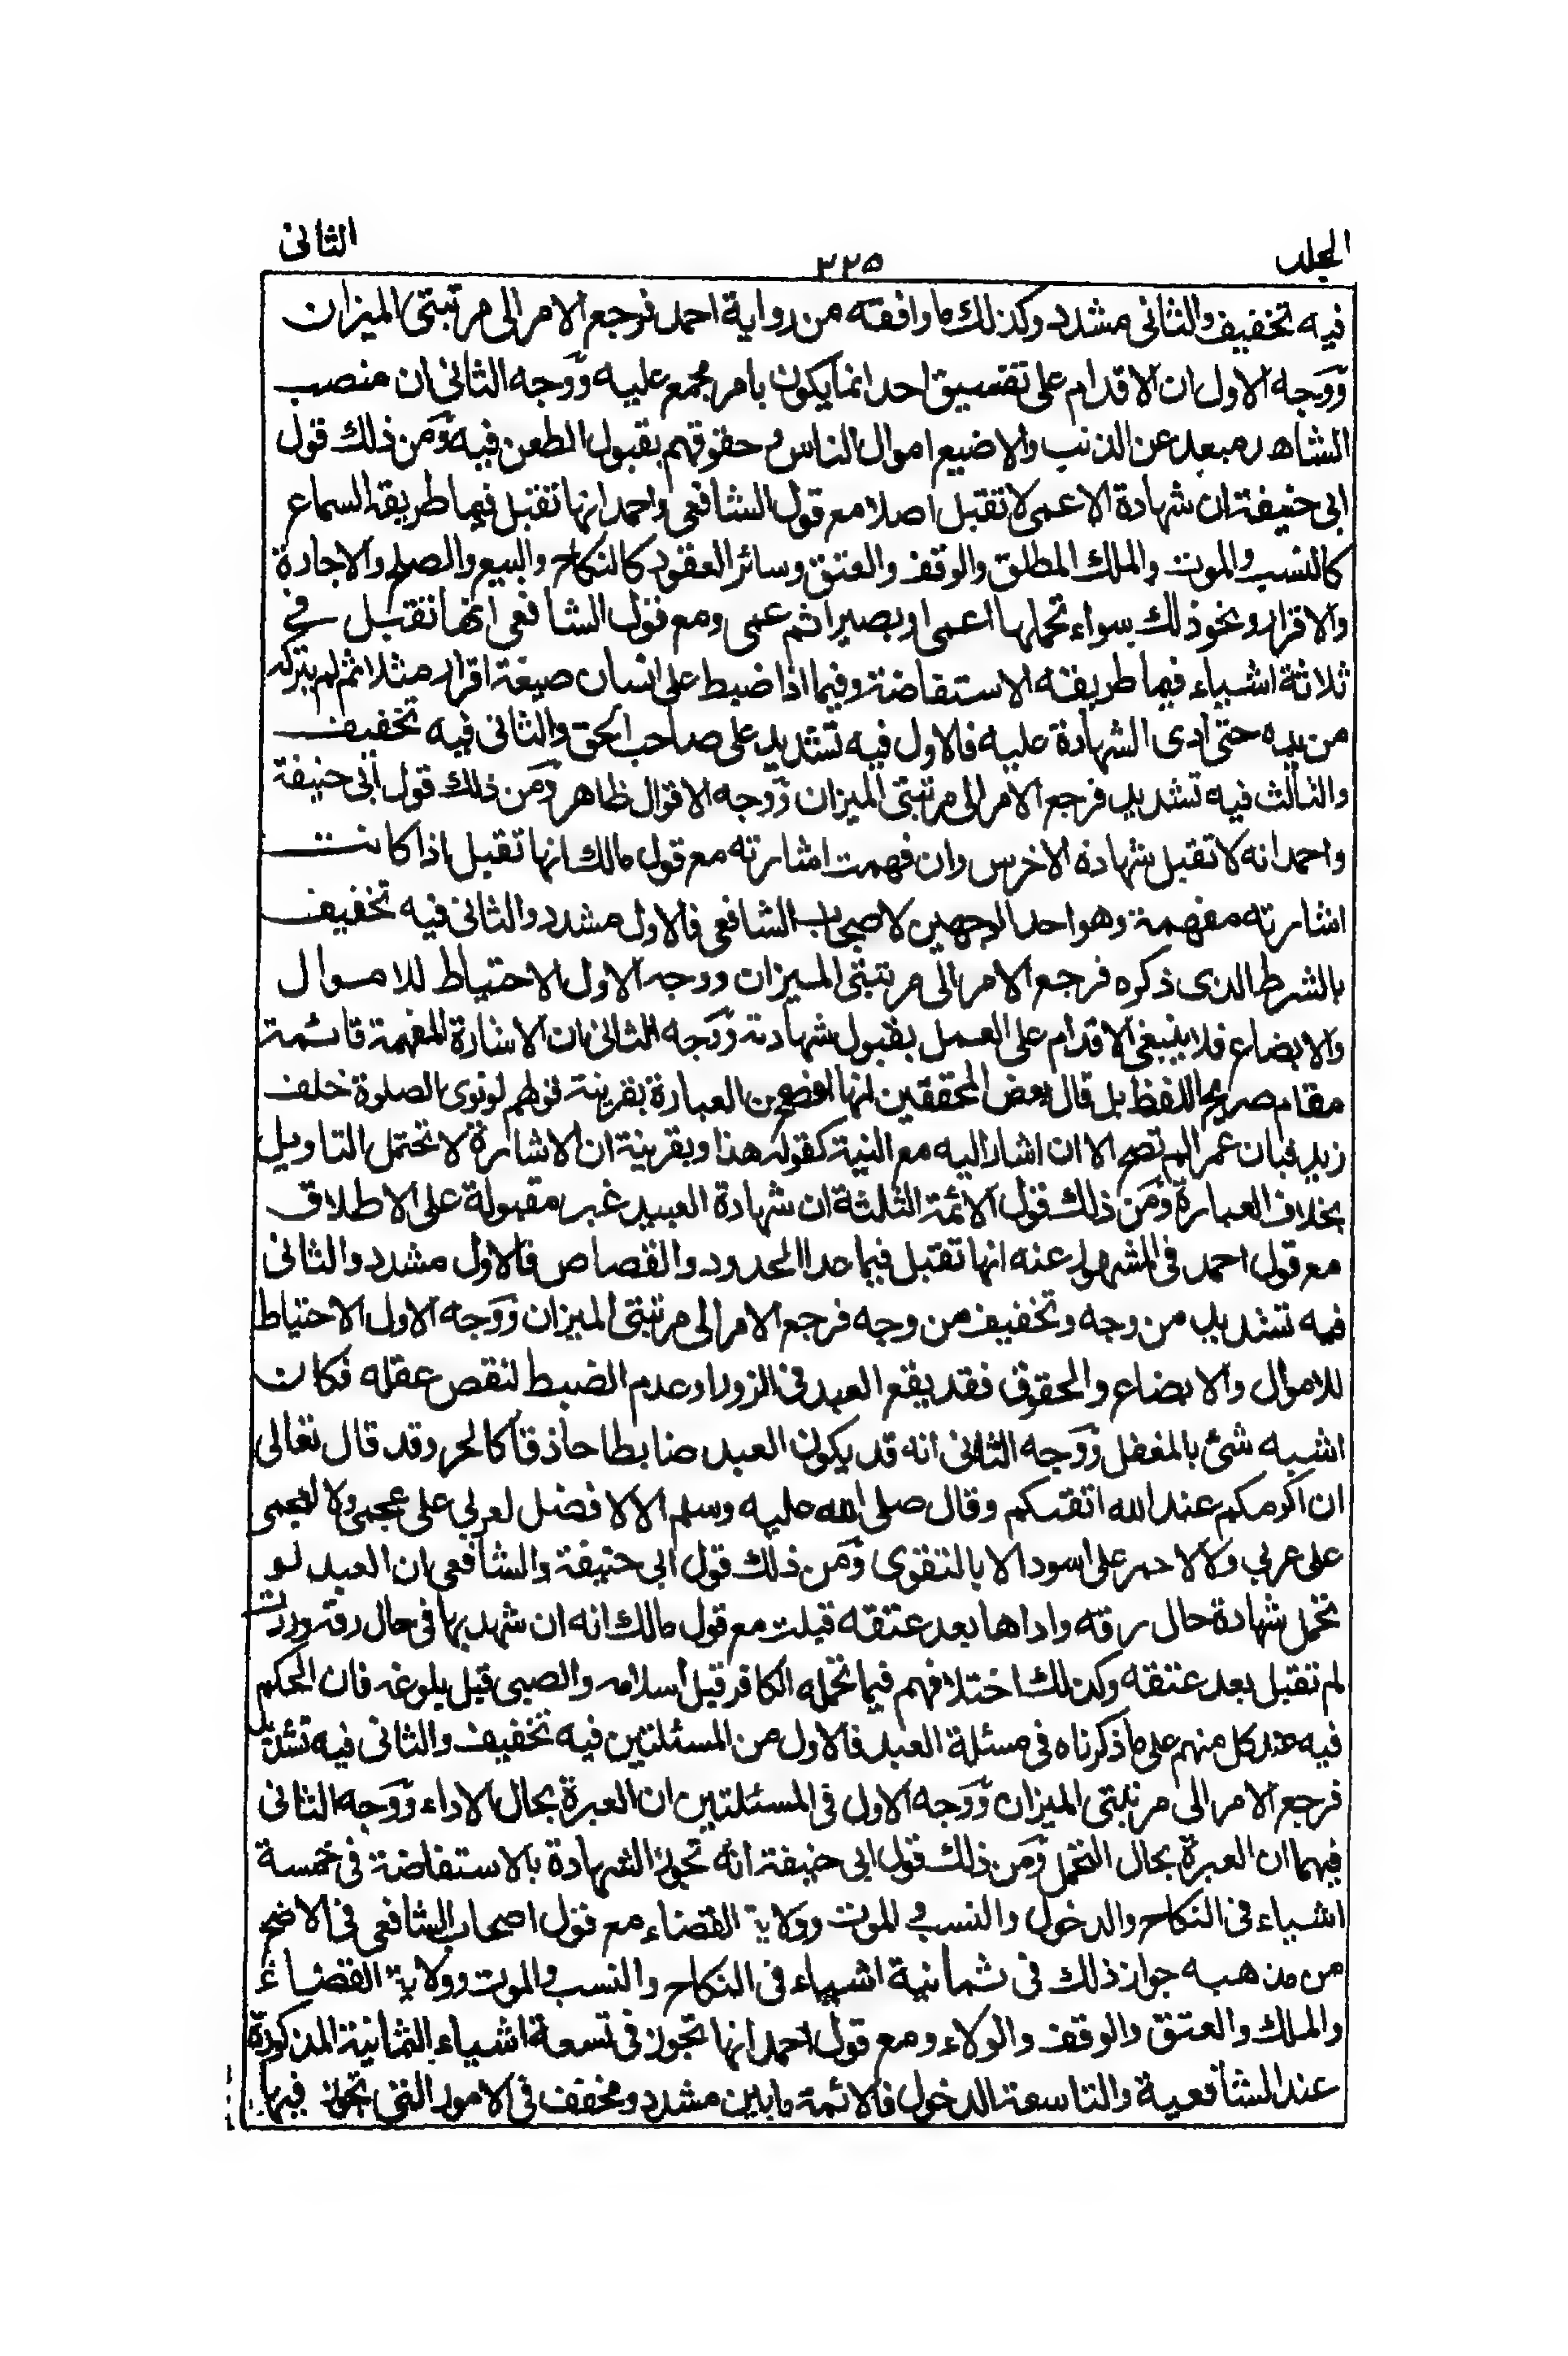 المجلد
٢٢٥
الثانى
فيه تخفيف والثانى مشدد وكذلك ما وافقه من رواية احمد فرجع الامر الى مرتبتى الميزان
وَوَجه الاول ان الاقدام على تفسيق احد انما يكون بامر مجمع عليه وَوَجه الثانى ان منصب
الشاهد مبعد عن الذنب والاضيع اموال الناس و حقوقهم بقبول الطعن فيه وَمَن ذلك قول
ابى حنيفة ان شهادة الاعمى لا تقبل اصلا مع قول الشافعى واحمد انها تقبل فيما طريقه السماع
كالنسب والموت والملك المطلق والوقف والعتق وسائر العقود كالنكاح والبيع والصلح والاجارة
والاقرار ونحو ذلك سواء تحملها اعمى او بصيرا ثم عمى ومع قول الشافعى انها تقبل فے
ثلاثة اشياء فيما طريقه الاستفاضة وفيما اذا ضبط على انسان صيغة اقرار مثلا ثم لم يتركه
من يده حتى ادى الشهادة عليه فالاول فيه تشديد على صاحب الحق والثانى فيه تخفيف
والثالث فيه تشديد فرجع الامر الى مرتبتى الميزان وَوَجه الاقوال ظاهر وَمَن ذلك قول ابى حنيفة
واحمد انه لا تقبل شهادة الاخرس وان فهمت اشارته مع قول مالك انها تقبل اذا كانت
اشارته مفهمة وهو احد الوجهين لاصحاب الشافعى فالاول مشدد والثانى فيه تخفيف
بالشرط الذى ذكره فرجع الامر الى مرتبتى الميزان ووجه الاول الاحتياط للاموال
والابضاع فلا ينبغى الاقدام على العمل بقبول شهادته وَوَجه الثانى ان الاشارة المفهمة قائمة
مقام صريح اللفظ بل قال بعض المحققين انها افصح من العبارة بقرينة قولهم لو نوى الصلوة خلف
زيد فبان عمرا لم تصح الا ان اشار اليه مع النية كقوله هذا وبقرينة ان الاشارة لا تحتمل التاويل
بخلاف العبارة وَمَن ذلك قول الائمة الثلثة ان شهادة العبيد غير مقبولة على الاطلاق
مع قول احمد فى المشهور عنه انها تقبل فيما عدا الحدود والقصاص فالاول مشدد والثانى
فيه تشديد من وجه وتخفيف من وجه فرجع الامر الى مرتبتى الميزان وَوَجه الاول الاحتياط
للاموال والابضاع والحقوق فقد يقع العبد فى الزور او عدم الضبط لنقص عقله فكان
اشبه شئ بالمغفل وَوَجه الثانى انه قد يكون العبد ضابطا حاذقا كالحر وقد قال تعالى
ان اكرمكم عند الله اتقىكم وقال صلى الله عليه وسلم الا لا فضل لعربي على عجمى ولا لعجمى
على عربي ولا لاحمر على اسود الا بالتقوى وَمَن ذلك قول ابى حنيفة والشافعى ان العبد لو
تحمل شهادة حال رقه واداها بعد عتقه قبلت مع قول مالك انه ان شهد بها فى حال رقه وردت
لم تقبل بعد عتقه وكذلك اختلافهم فيما تحمله الكافر قبل اسلامه والصبى قبل بلوغه فان الحكم
فيه عند كل منهم على ما ذكرناه فى مسئلة العبد فالاول من المسئلتين فيه تخفيف والثانى فيه تشديد
فرجع الامر الى مرتبتى الميزان وَوَجه الاول فى المسئلتين ان العبرة بحال الاداء وَوَجه الثانى
فيهما ان العبرة بحال التحمل وَمَن ذلك قول ابى حنيفة انه تجوز الشهادة بالاستفاضة فى خمسة
اشياء فى النكاح والدخول والنسب والموت وولاية القضاء مع قول اصحاب الشافعى فى الاصح
من مذهبه جواز ذلك فى ثمانية اشياء فى النكاح والنسب والموت وولاية القضاء
والملك والعتق والوقف والولاء ومع قول احمد انها تجوز فى تسعة اشياء الثمانية المذكورة
عند الشافعية والتاسعة الدخول فالائمة ما بين مشدد ومخفف فى الامور التى تجوز فيها